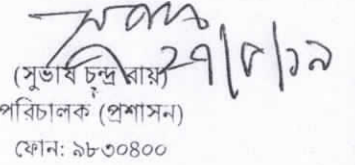 ২৭/৮/১৯
(সুভাষ চন্দ্র রায়)
পরিচালক (প্রশাসন)
ফোন: ৯৮৩০৪০০